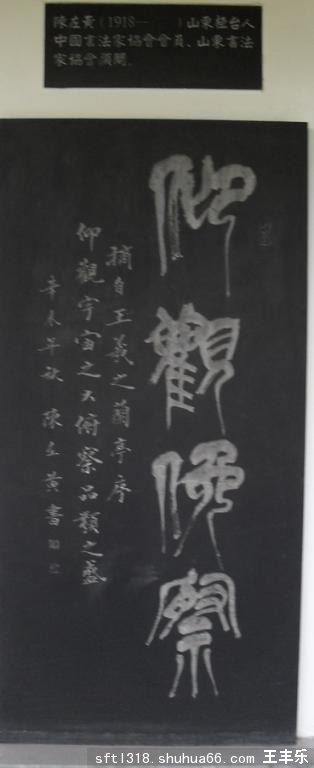 陳左黄(1918— )山東桓台人
中國書法家協會會員、山東書法
家協會顧問。
仰觀俯察
摘自王羲之蘭亭序
仰觀宇宙之大俯察品類之盛
辛未年秋 陳左黄書
sftl318.shuhua66.com 王丰乐